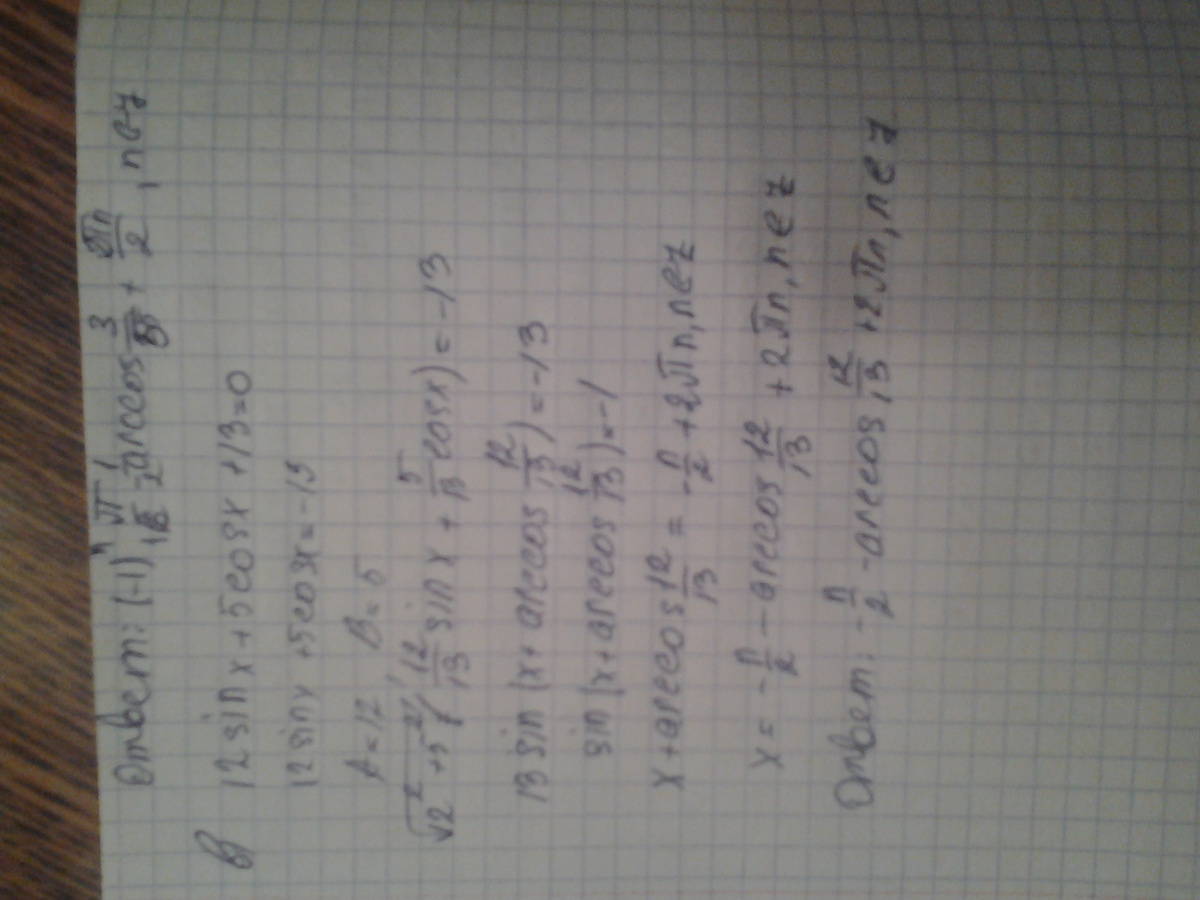 Ответ: (-1)ⁿ π/12 - 1/2 arccos 3/5 + πn/2, n∈z
в) 12 sin x + 5 cos x + 13 = 0
12 sin x + 5 cos x = -13
A = 12 B = 5
√12² + 5² (12/13 sin x + 5/13 cos x) = -13
13 sin (x + arccos 12/13) = -13
sin (x + arccos 12/13) = -1
x + arccos 12/13 = - π/2 + 2πn, n∈z
x = - π/2 - arccos 12/13 + 2πn, n∈z
Ответ: - π/2 - arccos 12/13 + 2πn, n∈z